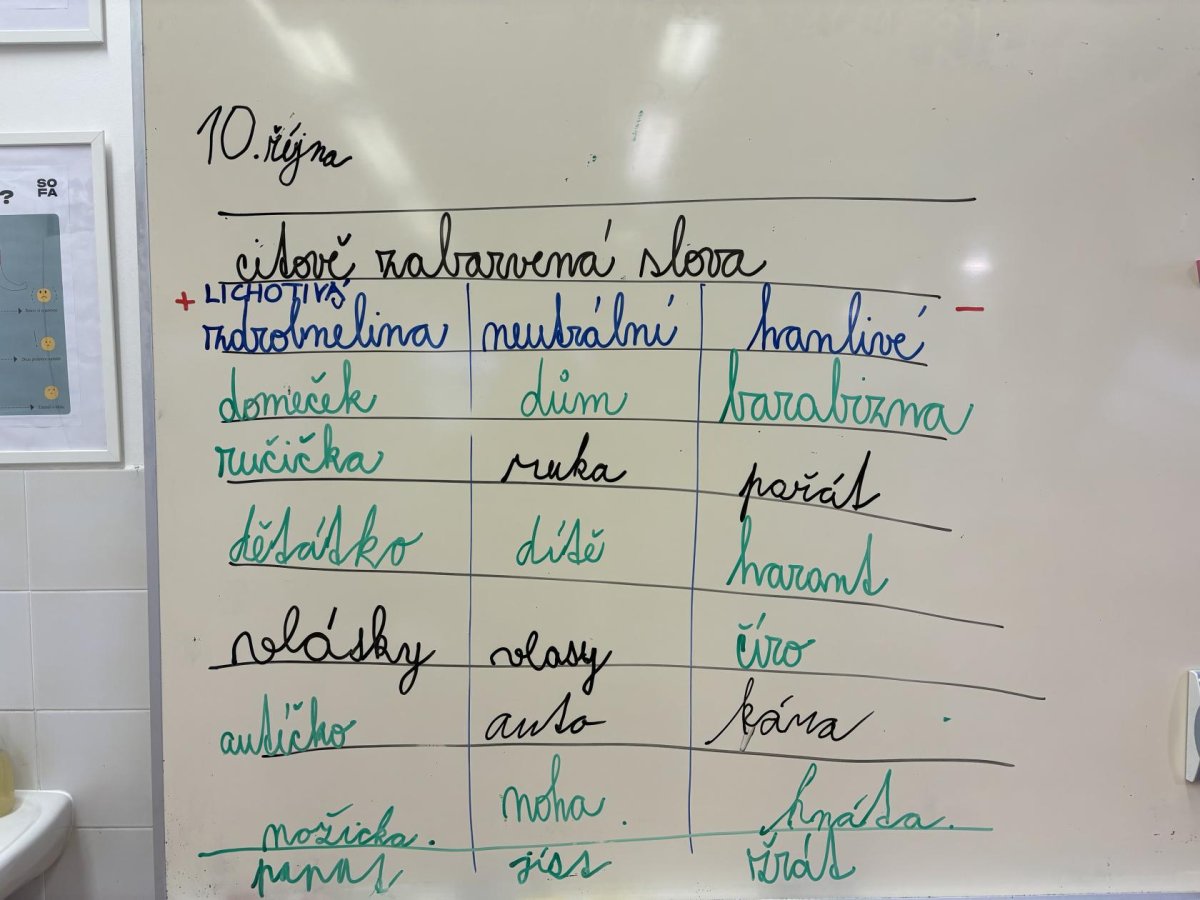 10. října
SOFA
?
citově zabarvená slova
+ LICHOTIVÁ
zdrobnelina neutrální hanlivé −
domeček dům barabizna
ručička ruka pařát
děťátko dítě harant
vlásky vlasy číro
autíčko auto kára
nožička. noha. hnáta.
papat jíst žrát